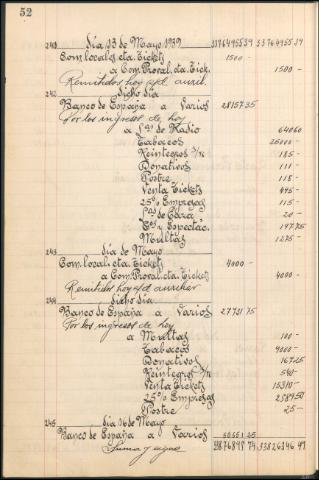 52
240 Día 13 de Mayo 1939 3376495539 3376495539
Com. local cta. Tickets 1500 -
a Com. Proval. cta. Tick. 1500 -
Remitidos hoy s/d auxil.
242 dicho día
Banco de España a Varios 2815735
Por los ingresos de hoy
a Las de Radio 64060
Tabacos 25000 -
Reintegros 185 -
Donativos 111 -
Postre 118 -
Venta Tickets 495 -
25% Empresas 115 -
20 -
Ets y Espectác. 19775
Multas 1275 -
243 día de Mayo
Com. local. cta. Tickets 4000 -
a Com. Proval. cta. Tickets 4000 -
Remitidos hoy s/d auxiliar
244 dicho día
Banco de España a Varios 2773175
Por los ingresos de hoy
a Multas 100 -
Tabacos 9000 -
Donativos 16725
Reintegros 540 -
Venta Tickets 15310 -
25% Empresas 258950
Postre 25 -
245 Día 16 de Mayo
Banco de España a Varios 5055125
Suma y sigue